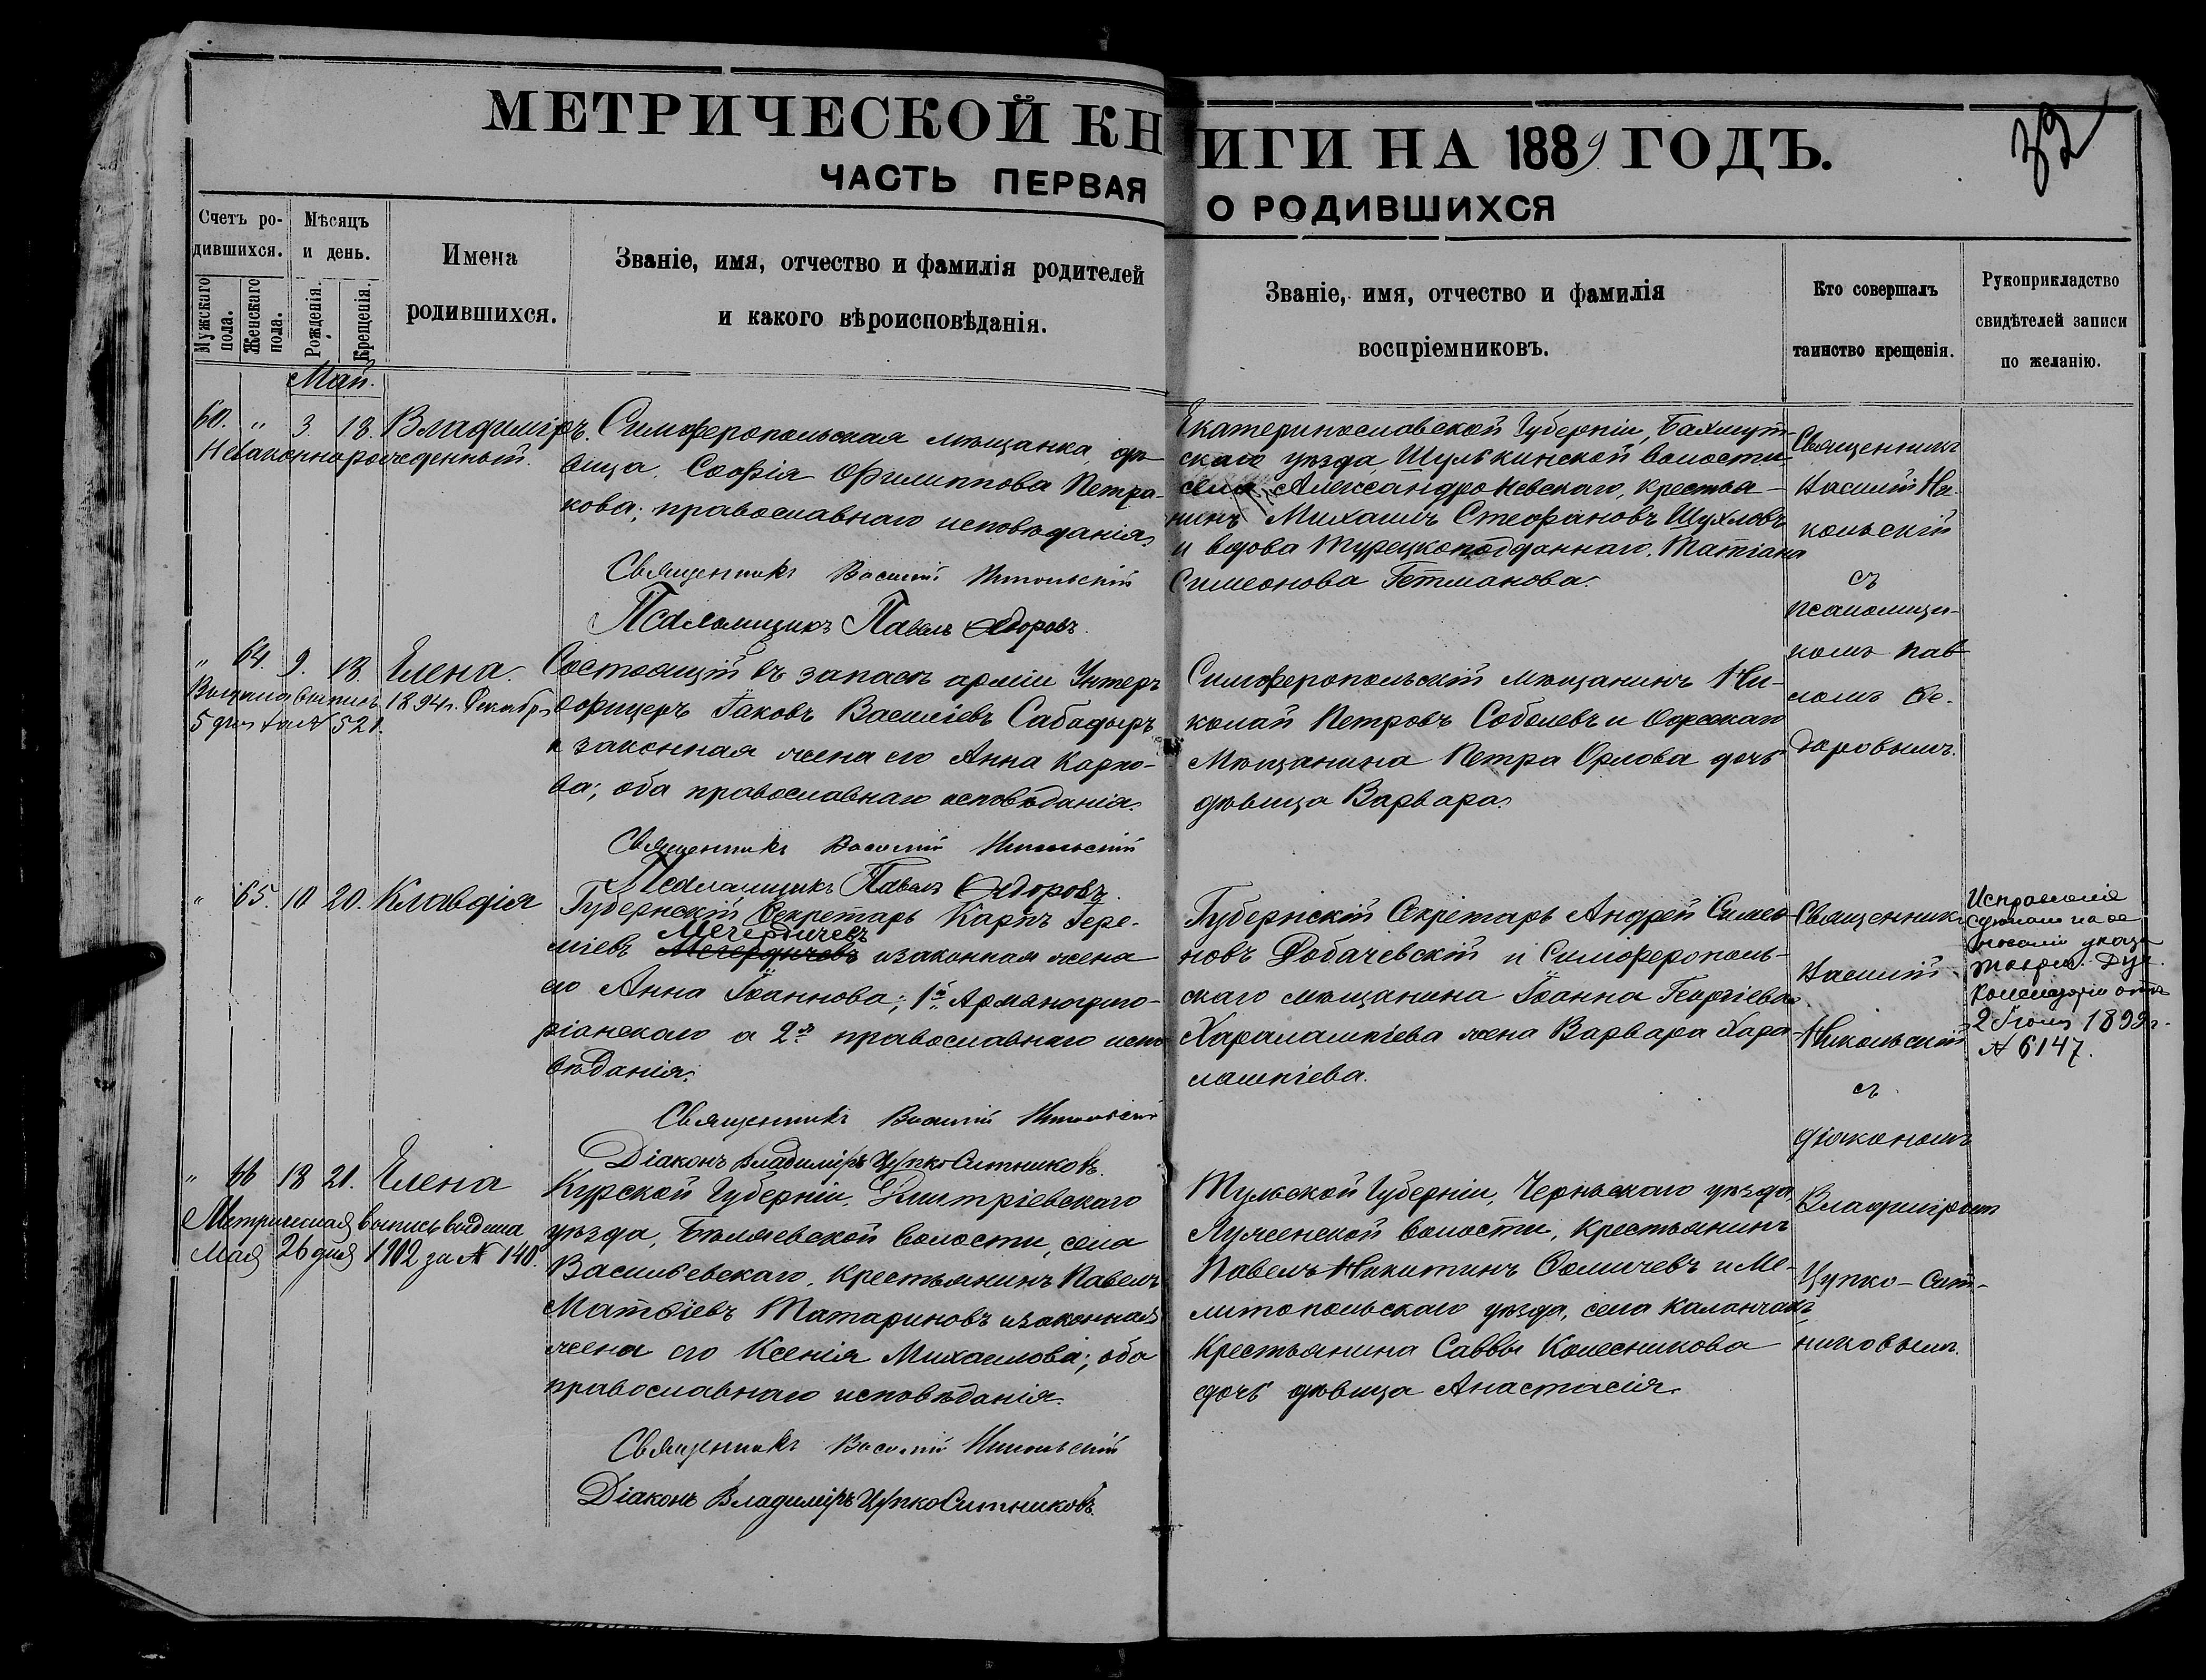 МЕТРИЧЕСКОЙ КНИГИ НА 1889 ГОДЪ.
32
ЧАСТЬ ПЕРВАЯ О РОДИВШИХСЯ
Счетъ ро-
дившихся.
Мужскаго пола.
Женскаго пола.
Мѣсяцъ
и день.
Рожденія.
Крещенія.
Имена
родившихся.
Званіе, имя, отчество и фамилія родителей
и какого вѣроисповѣданія.
Званіе, имя, отчество и фамилія
воспріемниковъ.
Кто совершалъ
таинство крещенія.
Рукоприкладство
свидѣтелей записи
по желанію.
Май.
60. " 3. 18. Владиміръ.
Незаконнорожденный.
Симферопольская мѣщанка дѣ-
вица, Софія Филиппова Петра-
кова; православнаго исповѣданія.
Священникъ Василій Никольскій
Псаломщикъ Павелъ Ѳедоровъ.
Екатеринославской Губерніи, Бахмут-
скаго уѣзда Шулькинской волости
села Александро Невскаго, крестья-
нинъ Михаилъ Стефановъ Щухловъ
и вдова Турецкоподданнаго, Татіана
Симеонова Гетманова.
Священникъ
Василій Ни-
кольскій
съ
псаломщи-
комъ Пав-
ломъ Ѳе-
доровымъ.
" 64. 9. 18. Елена.
Выдана выпись 1894 г. Декабря
5 дня за № 521.
Состоящій въ запасѣ арміи Унтеръ
офицеръ Іаковъ Василіевъ Сабадыръ
и законная жена его Анна Карпо-
ва; оба православнаго исповѣданія.
Священникъ Василій Никольскій
Псаломщикъ Павелъ Ѳедоровъ.
Симферопольскій мѣщанинъ Ни-
колай Петровъ Соболевъ и Оржскаго
Мѣщанина Петра Орлова дочь
дѣвица Варвара.
" 65. 10 20. Клавдія
Губернскій Секретарь Карпъ Іере-
Мечердичевъ
міевъ Мегердичовъ и законная жена
его Анна Іоаннова; 1й Армяногриго-
ріанскаго а 2я православнаго испо-
вѣданія.
Священникъ Василій Никольскій
Діаконъ Владиміръ Цупко Ситниковъ.
Губернскій Секретарь Андрей Симео-
новъ Добачевскій и Симферополь-
скаго мѣщанина Іоанна Георгіева
Харалампіева жена Варвара Хара-
лампіева.
Священникъ
Василій
Никольскій
съ
діакономъ
Владиміромъ
Цупко-Сит-
никовымъ.
Исправленія
сдѣланы на ос-
нованіи указа
Таврич. Дух.
Консисторіи отъ
2 Іюня 1899 г.
№ 6147.
" 66 18 21. Елена
Метрическая выпись выдана
Мая 26 дня 1902 за № 140.
Курской Губерніи, Дмитріевскаго
уѣзда, Бѣляевской волости, села
Васильевскаго, крестьянинъ Павелъ
Матвіевъ Татариновъ и законная
жена его Ксенія Михаилова; оба
православнаго исповѣданія.
Священникъ Василій Никольскій
Діаконъ Владиміръ Цупко Ситниковъ.
Тульской Губерніи, Черньскаго уѣзда
Лужненской волости, крестьянинъ
Павелъ Никитинъ Фомичевъ и Ме-
литопольскаго уѣзда, села Каланчакъ
Крестьянина Саввы Колесникова
дочь дѣвица Анастасія.